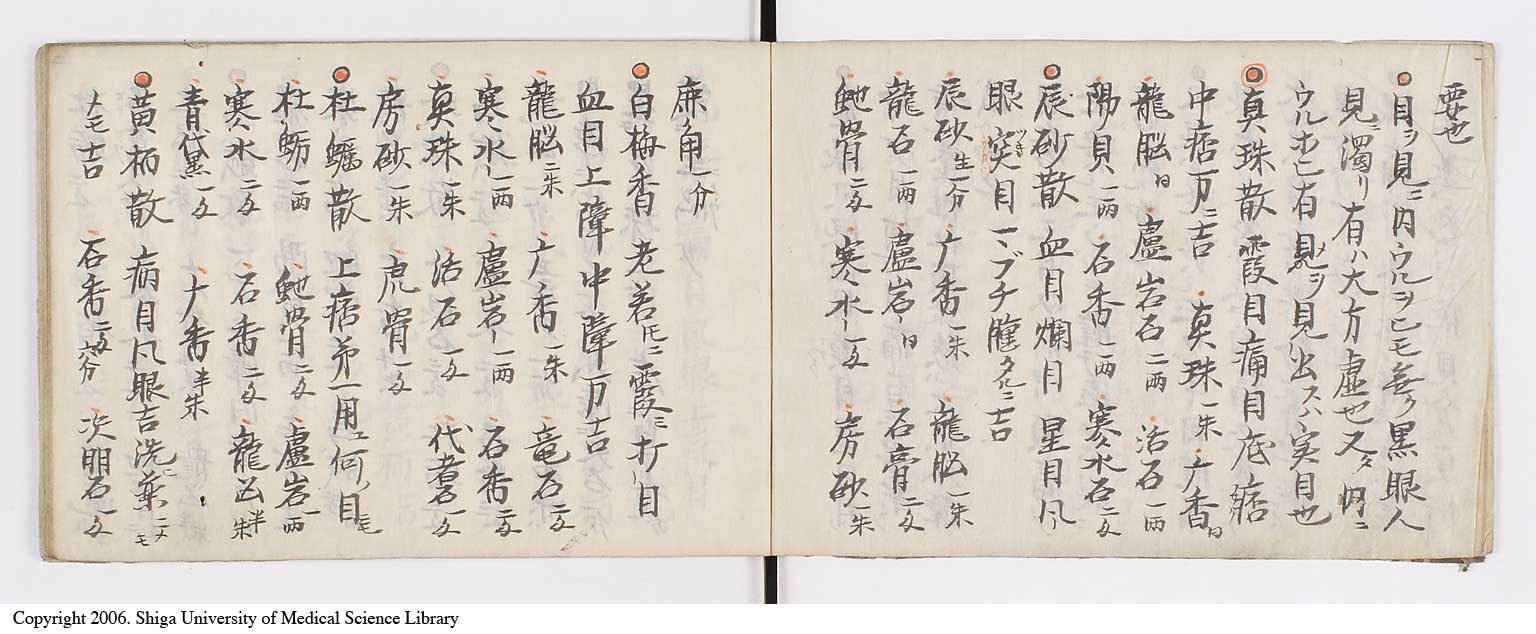 要也
目ヲ見ニ内ウルヲヒモ無ク黒眼人
見ニ濁リ有ハ大方虚也又タ内ニ
ウルホヒ有見ヲ見出スハ実目也
真珠散 霞目痛目疱瘡
中痞一万ニ吉 真珠一朱 广香〃
龍脳〃 盧岩石二両 活石一両
陽貝一両 石香一両 寒水石二匁
辰砂散 血目爛目 星目凡ソ
眼突目一ブチ腫タルニ吉
辰砂生一分 广香一朱 龍脳一朱
龍石一両 盧岩〃 石膏二匁
鮑骨二匁 寒水〃一匁 房砂一朱
麻角一分
白梅香 老若ニ霞ニ打ノ目
血目上障中障一万吉
龍脳二朱 广香一朱 竜石二匁
寒水〃一両 盧岩〃一両 石香二匁
真珠一朱 活石一匁 代者石一匁
房砂一朱 虎骨一匁
杜蠣散 上痞第一用エ何ノ目モ
杜蛎一両 鮑骨二匁 盧岩一両
寒水二匁 石香二匁 龍凶半朱
青黛一匁 广香半朱
黄柄散 病目凡眼吉洗薬ニメモ
メモ吉 石香二匁六分 次明石一匁
Copyright 2006. Shiga University of Medical Science Library